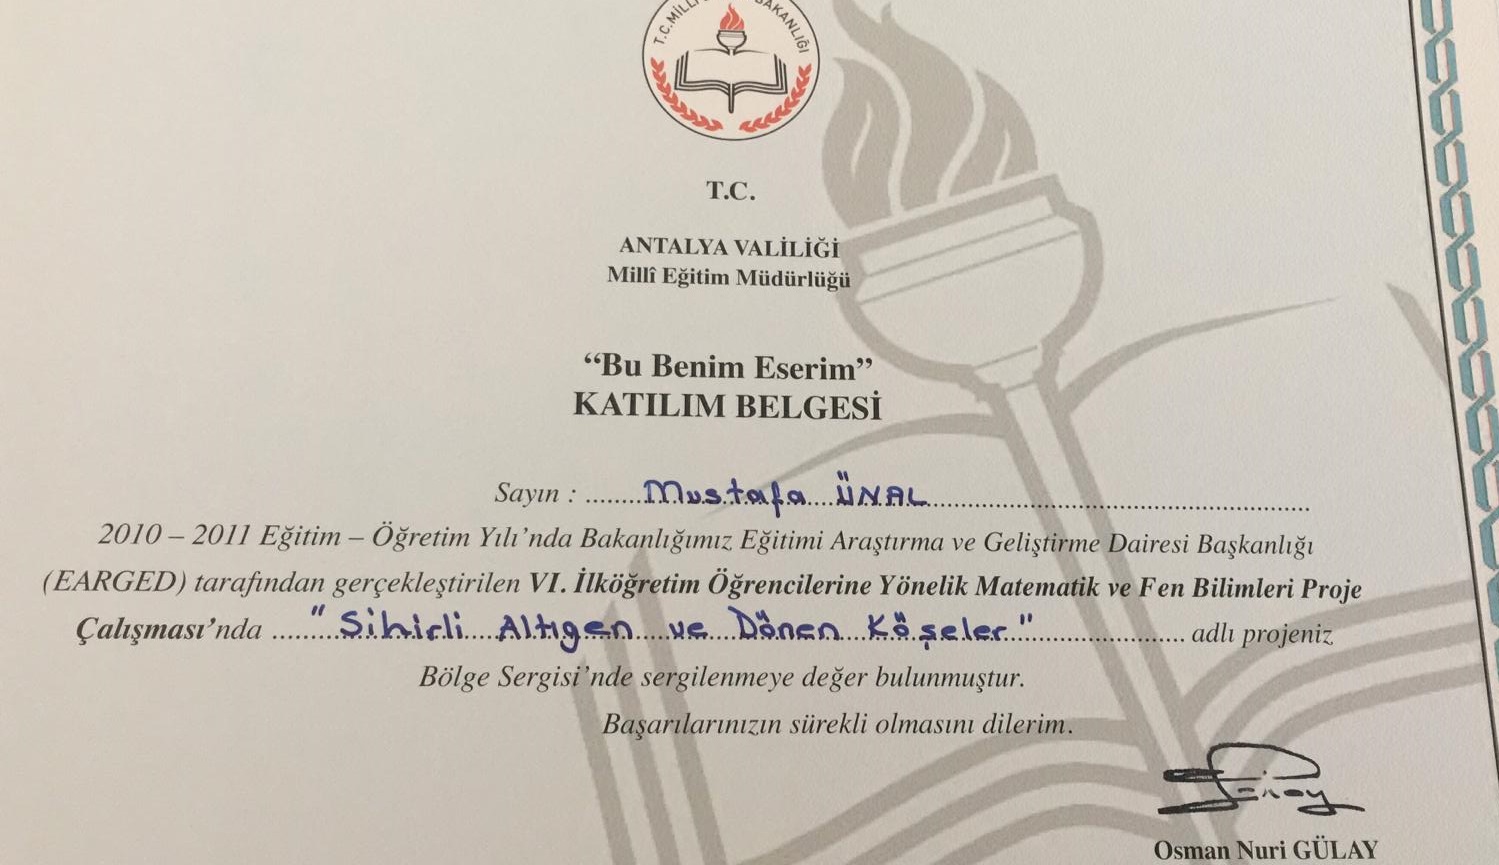 T.C. MİLLİ BAKANLIĞI
T.C.
ANTALYA VALİLİĞİ
Millî Eğitim Müdürlüğü
“Bu Benim Eserim”
KATILIM BELGESİ
Sayın : ......Mustafa ÜNAL......
2010 – 2011 Eğitim – Öğretim Yılı’nda Bakanlığımız Eğitimi Araştırma ve Geliştirme Dairesi Başkanlığı
(EARGED) tarafından gerçekleştirilen VI. İlköğretim Öğrencilerine Yönelik Matematik ve Fen Bilimleri Proje
Çalışması’nda ......"Sihirli Altıgen ve Dönen Köşeler"...... adlı projeniz
Bölge Sergisi’nde sergilenmeye değer bulunmuştur.
Başarılarınızın sürekli olmasını dilerim.
Osman Nuri GÜLAY